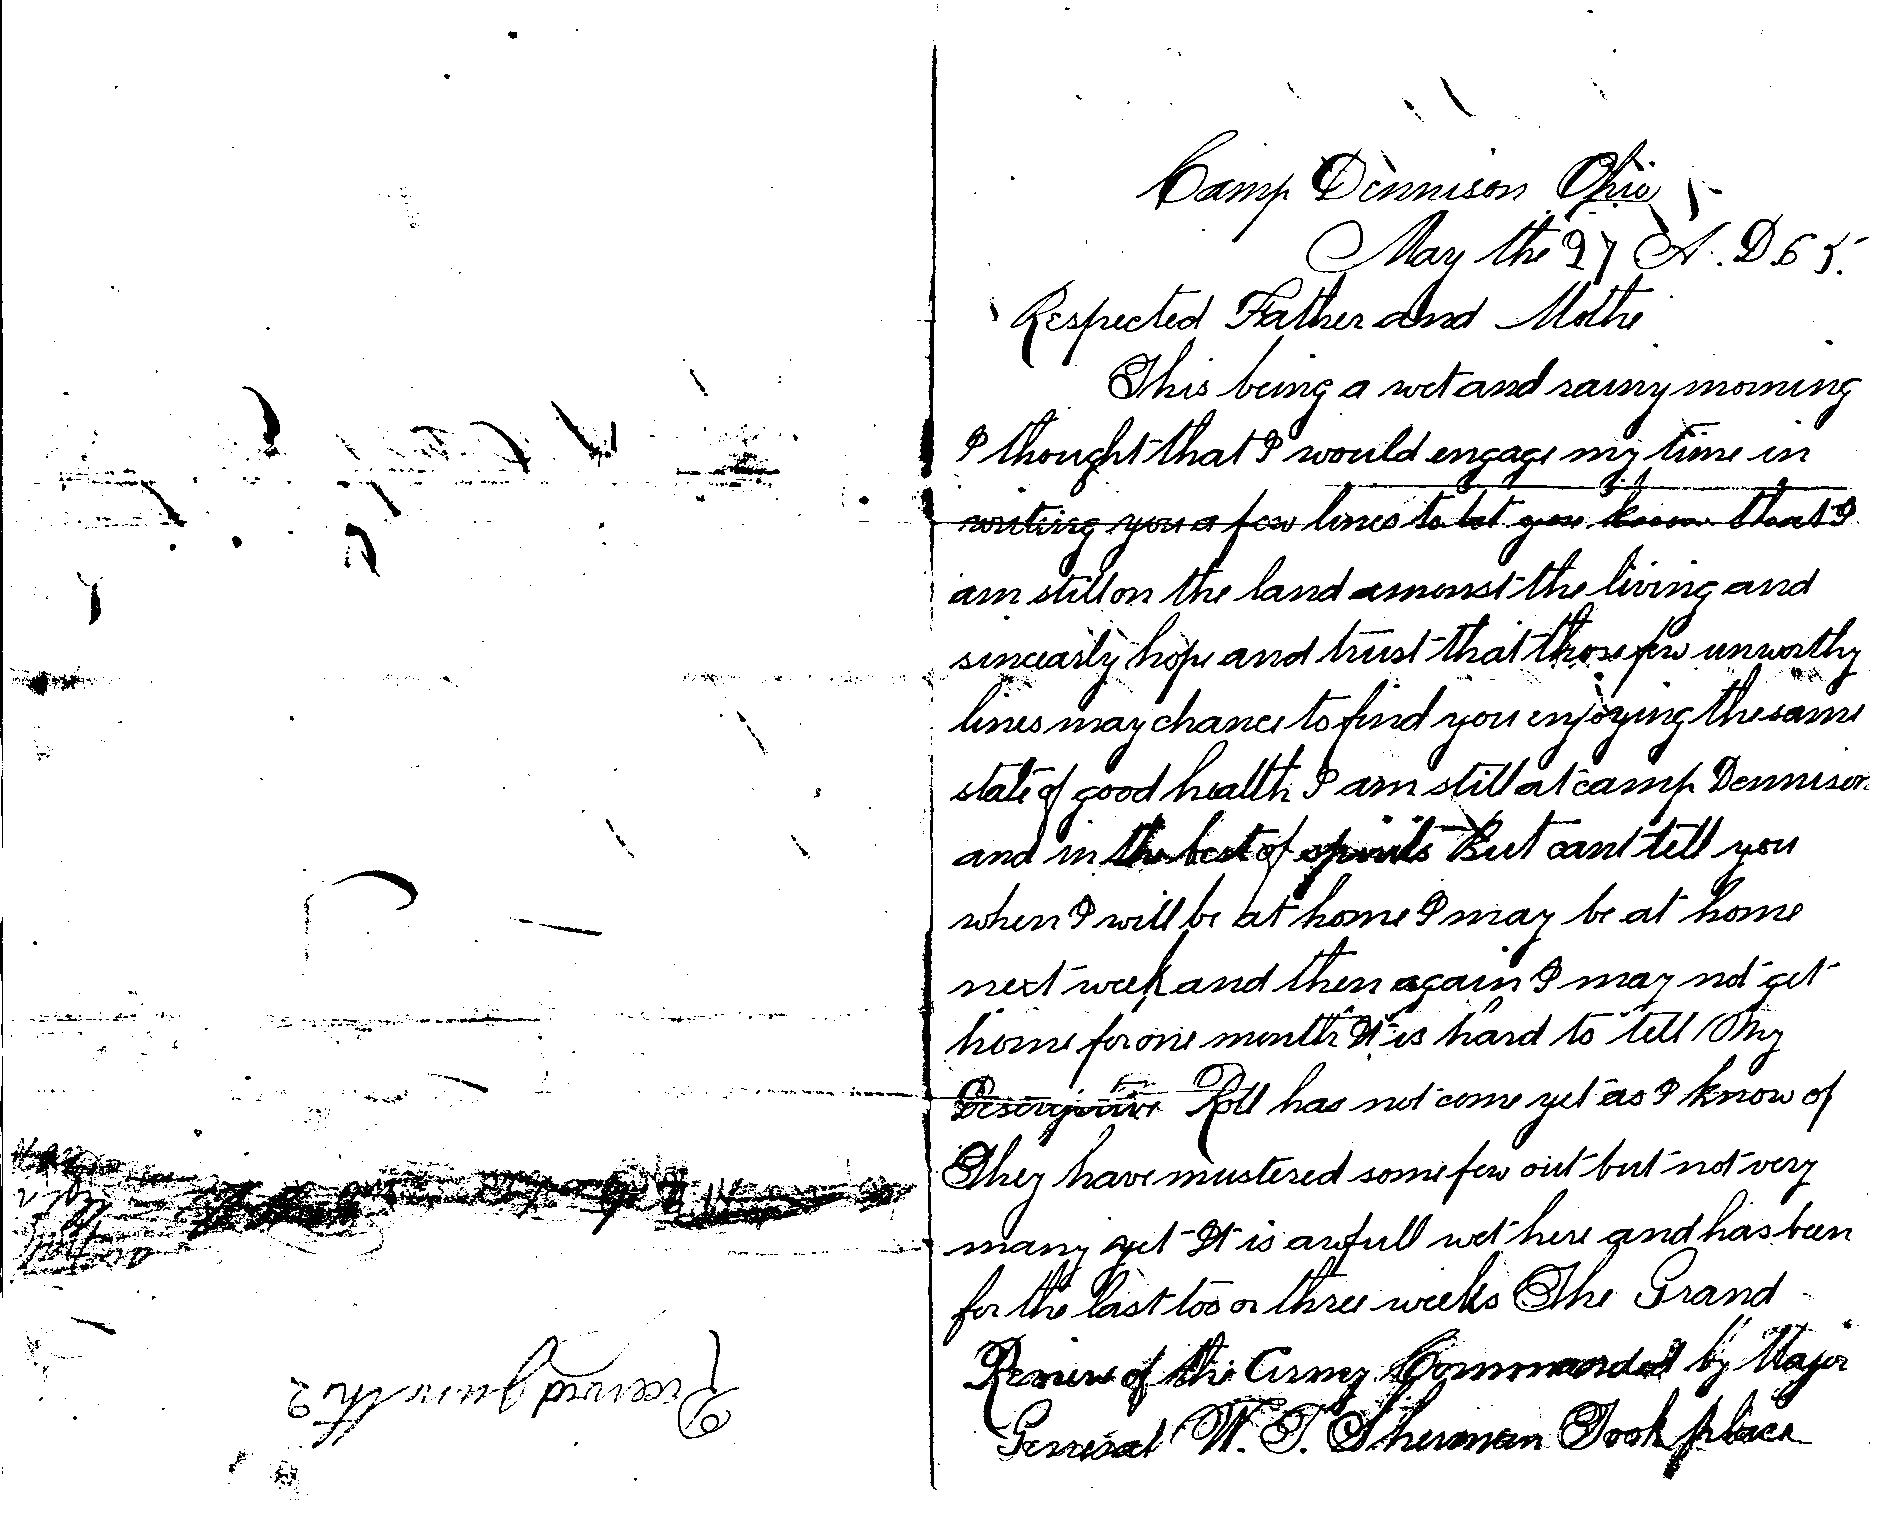 Camp Dennison Ohio
May the 27 A. D 65.
Respected Father and Mothe
This being a wet and rainy morning
I thought that I would engage my time in
writing you a few lines to let you know that I
am still on the land amonst the living and
sincearly hope and trust that those few unworthy
lines may chance to find you enjoying the same
state of good health I am still at camp Dennison
and in the best of spirits But cant tell you
when I will be at home I may be at home
next week and then again I may not get
home for one month It is hard to tell My
Descriptive Roll has not come yet as I know of
They have mustered some few out but not very
many yet It is awfull wet here and has been
for the last too or three weeks The Grand
Review of the Army Commanded by Major
General W. T. Sherman Took place
Received June th 2